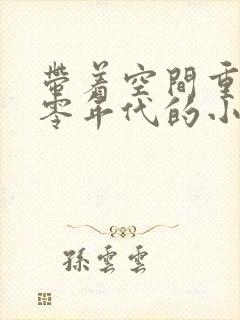 帶着空間重
零年代的小
孫雲雲